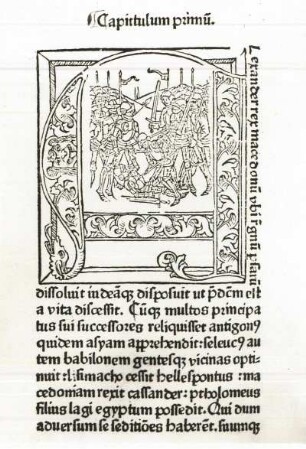 ¶Capitulum primū.
Lexander rex macedonū vbi r̄gnū psarū
dissoluit indeāq disposuit ut p̄dēm est
a vita discessit. Cūq multos principa
tus sui successores reliquisset antigonꝯ
quidem asyam apprehendit: seleucꝯ au
tem babilonem gentesqꝫ vicinas opti-
nuit: lisimacho cessit hellespontus: ma
cedoniam rexit cassander: ptholomeus
filius lagi egyptum possedit. Qui dum
adversum se seditiōes haberēt. suumqꝫ